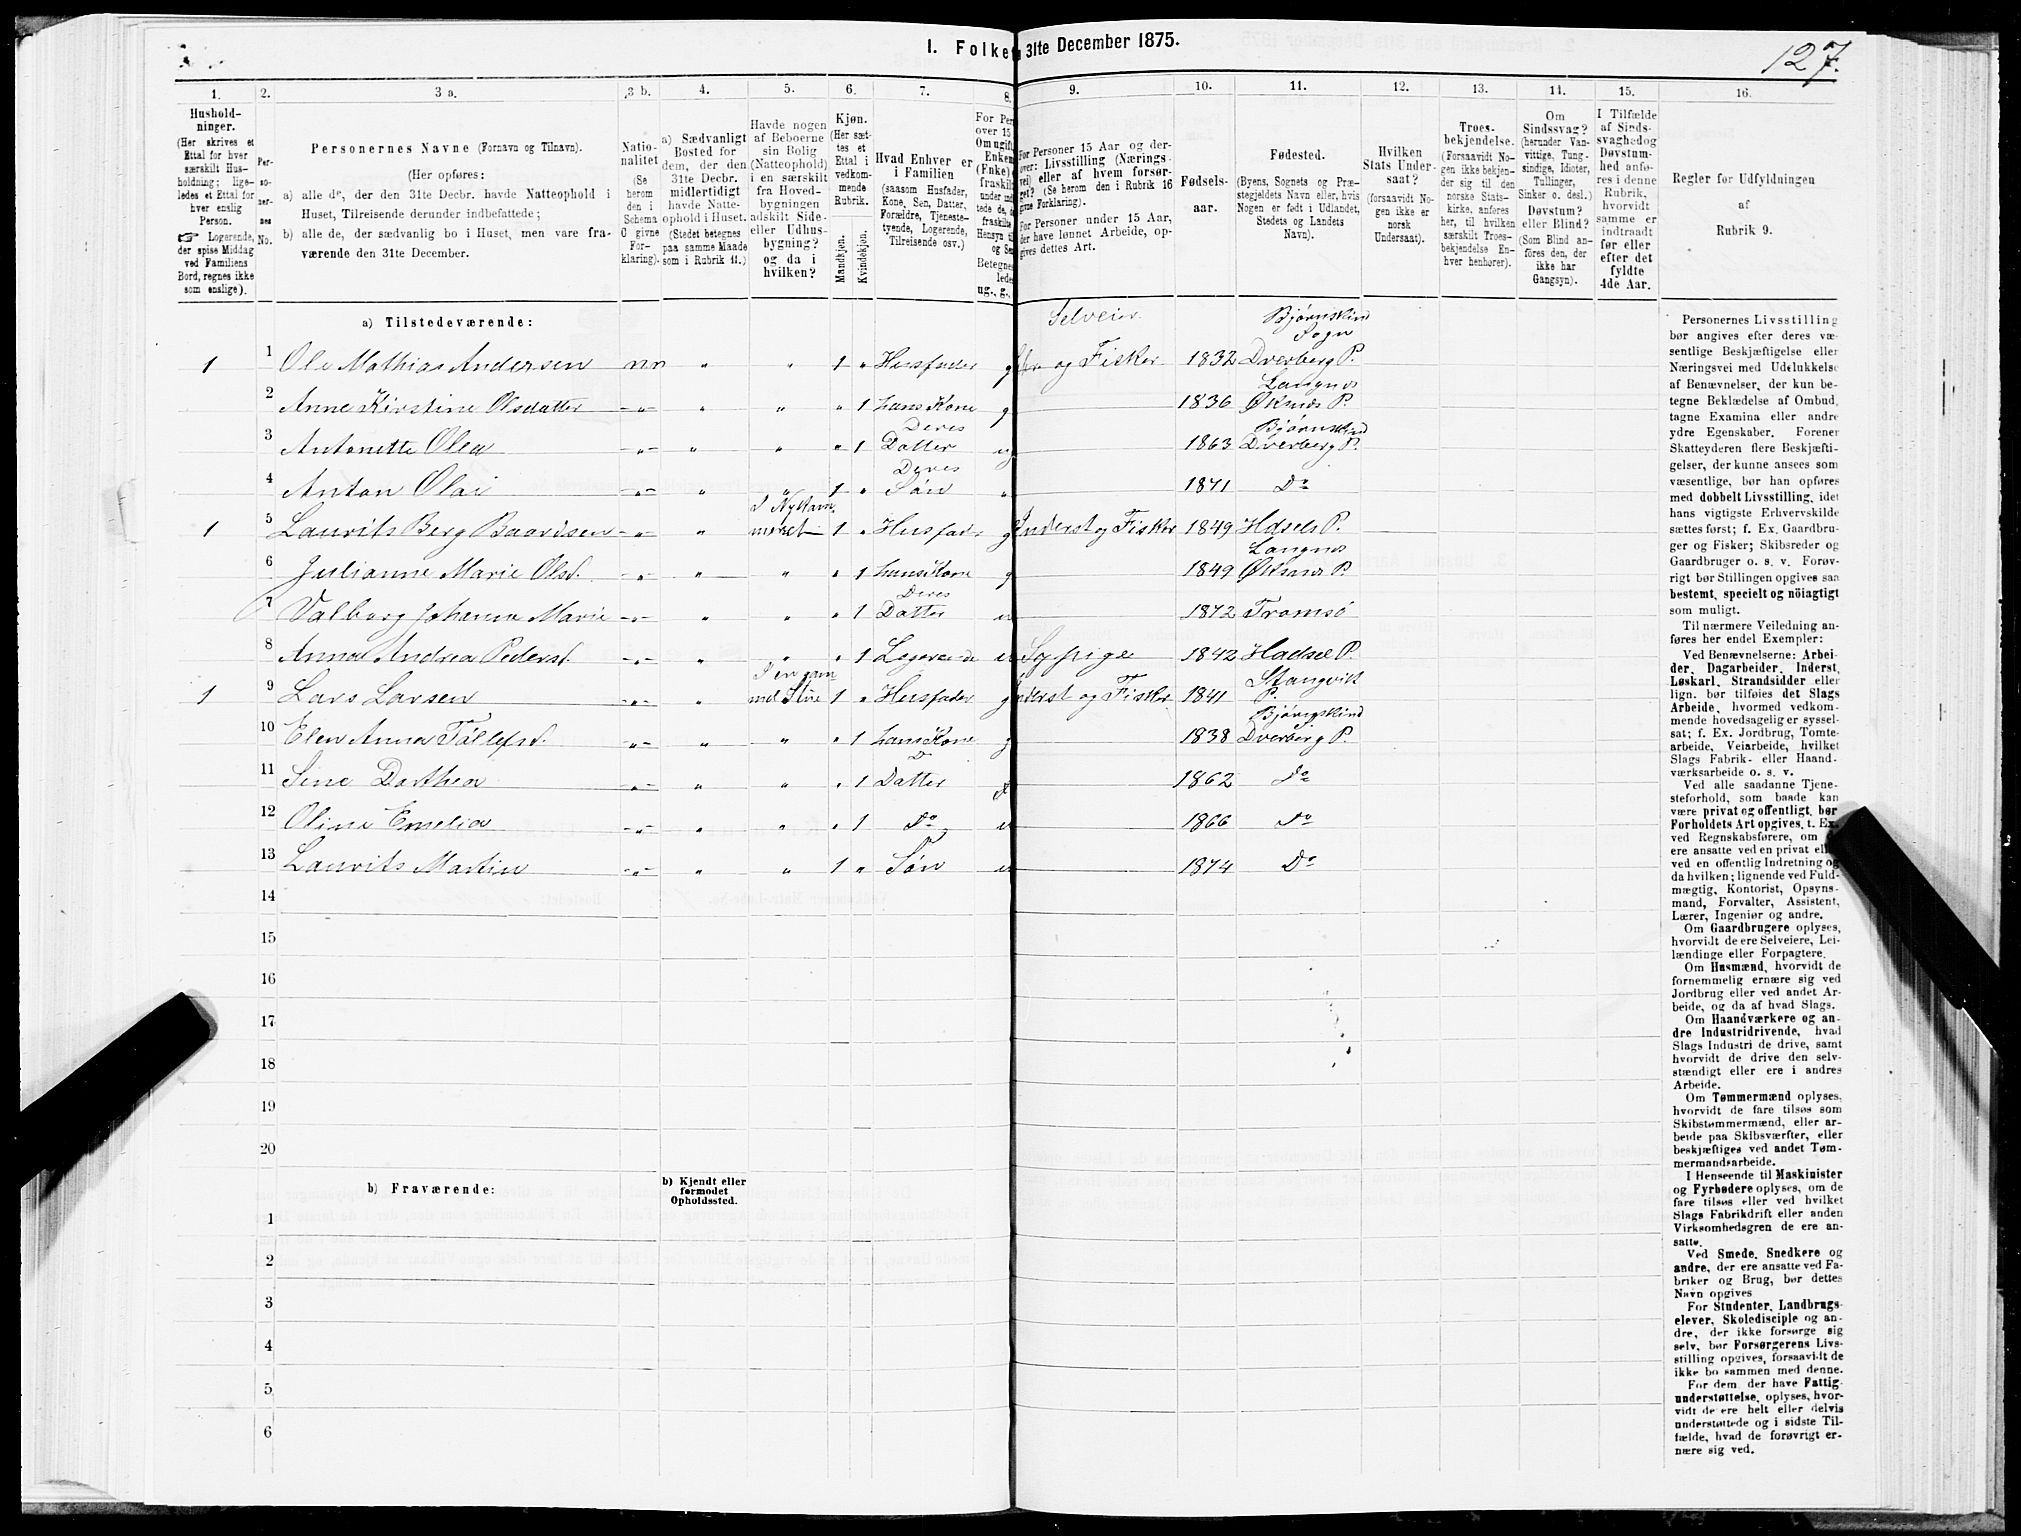 I. Folket 31te December 1875.
127.
1.
2.
3 a.
3 b.
4.
5.
6.
7.
8.
9.
10.
11.
12.
13.
11.
15.
16.
Hushold-
ninger.
(Her skrives et
Ettal for hver
særskilt Hus-
holdning; lige-
ledes et Ettal for
hver enslig
Person.
☞ Logerende,
der spise Middag
ved Familiens
Bord, regnes ikke
som enslige).
Per-
so-
ner-
nes
No.
Personernes Navne (Fornavn og Tilnavn).
(Her opføres:
a) alle de, der den 31te Decbr. havde Natteophold i
Huset, Tilreisende derunder indbefattede;
b) alle de, der sædvanlig bo i Huset, men vare fra-
værende den 31te December.
Natio-
nalitet
(Se
herom
den i
Schema
C givne
For-
klaring).
a) Sædvanligt
Bosted for
dem, der den
31te Decbr.
midlertidigt
havde Natte-
ophold i Huset.
(Stedet betegnes
paa samme Maade
som i Rubrik 11.)
Havde nogen
af Beboerne
sin Bolig
(Natteophold)
i en særskilt
fra Hoved-
bygningen
adskilt Side-
eller Udhus-
bygning?
og da i
hvilken?
Kjøn.
(Her sæt-
tes et
Ettal i
vedkom-
mende
Rubrik.
Mandkjøn.
Kvindekjøn.
Hvad Enhver er
i Familien
(saasom Husfader,
Kone, Søn, Datter,
Forældre, Tjeneste-
tyende, Logerende,
Tilreisende osv.)
For Per
over 15
Om ugift,
Enkem
(Enke)
fraskilt
For Personer 15 Aar og der-
over: Livsstilling (Nærings-
vei) eller af hvem forsør-
get? (Se herom den i Rubrik 16
givne Forklaring).
For Personer under 15 Aar,
der have lønnet Arbeide, op-
gives dettes Art.
Fødsels-
aar.
Fødested.
(Byens, Sognets og Præ-
stegjeldets Navn eller, hvis
Nogen er født i Udlandet,
Stedets og Landets
Navn).
Hvilken
Stats Under-
saat?
(forsaavidt No-
gen ikke er
norsk
Undersaat).
Troes-
bekjendelse.
(Forsaavidt No-
gen ikke bekjen-
der sig til den
norske Stats-
kirke, anføres
her, til hvilken
særskilt Troes-
bekjendelse En-
hver henhører).
Om
Sindssvag?
(herunder Van-
vittige, Tung-
sindige, Idioter,
Tullinger,
Sinker o. desl.)
Døvstum?
eller Blind?
(Som Blind an-
føres den, der
ikke har
Gangsyn).
I Tilfælde
af Sinds-
svaghed og
Døvstum-
hed anfø-
res i denne
Rubrik,
hvorvidt
samme er
indtraadt
før eller
efter det
fyldte
4de Aar.
Regler for Udfyldningen
af
Rubrik 9.
a) Tilstedeværende:
Selveier Bjørnskind
Sogn
1 1 Ole Mathias Andersen nn „ „ 1 „ Husfader g og Fisker 1832 Dverberg P.
Langnes
2 Anne Kirstine Olsdatter -„- „ „ „ 1 hans Kone g 1836 Øksnæs P.
Deres Bjørnskind
3 Antonette Olea -„- „ „ „ 1 Datter u 1863 Dverberg P.
Deres
4 Anton Olai -„- „ „ 1 „ Søn „ 1871 Do
1 5 Laurits Berg Baardsen -„- „ 1 „ Husfader g Inderst og Fisker 1849 Hdsels P.
Langnes
6 Julianne Marie Olsd. -„- „ „ „ 1 hans Kone g 1849 Øksnæs P.
Deres
7 Valborg Johanna Marie -„- „ „ „ 1 Datter u 1872 Tromsö
8 Anna Andrea Pedersd. -„- „ „ „ 1 Logerende u Sypige 1842 Hadsel P.
I en gam- Stangvik
1 9 Lars Larsen -„- „ mel Stue 1 „ Husfader g Inderst og Fisker 1841 P.
Bjørnskind
10 Elen Anna Tollefsd. -„- „ „ „ 1 hans Kone g 1838 Dverberg P.
D
11 Sine Dorthea -„- „ „ „ 1 Datter 1862 Do
12 Oline Emelia -„- „ „ „ 1 Do u 1866 Do
13 Laurits Martin -„- „ „ 1 „ Søn u 1874 Do
14
15
16
17
18
19
20
b) Fraværende:
b) Kjendt eller
formodet
Opholdssted.
1
2
3
4
5
6
Personernes Livsstilling
bør angives efter deres væ-
sentlige Beskjæftigelse eller
Næringsvei med Udelukkelse
af Benævnelser, der kun be-
tegne Beklædelse af Ombud,
tagne Examina eller andre
ydre Egenskaber. Forener
Skatteyderen flere Beskjæfti-
gelser, der kunne ansees som
væsentlige, bør han opføres
med dobbelt Livsstilling, idet
hans vigtigste Erhvervskilde
sættes først; f. Ex. Gaardbru-
ger og Fisker; Skibsreder og
Gaardbruger o. s. v. Forøv-
rigt bør Stillingen opgives saa
bestemt, specielt og nöiagtigt
som muligt.
Til nærmere Veiledning an-
føres her endel Exempler:
Ved Benævnelserne: Arbei-
der, Dagarbeider, Inderst,
Løskarl, Strandsidder eller
lign. bør tilföies det Slags
Arbeide, hvormed vedkom-
mende hovedsagelig er syssel-
sat; f. Ex. Jordbrug, Tomte-
arbeide, Veiarbeide, hvilket
Slags Fabrik- eller Haand-
værksarbeide o. s. v.
Ved alle saadanne Tjene-
steforhold, som baade kan
være privat og offentligt, bør
Forholdets Art opgives, t. Ex.
ved Regnskabsførere, om
ere ansatte ved en privat el
ved en offentlig Indretning og
da hvilken; lignende ved Fuld-
mægtig, Kontorist, Opsyns-
mand, Forvalter, Assistent,
Lærer, Ingeniør og andre.
Om Gaardbrugere oplyses,
hvorvidt de ere Selveiere, Lei-
lændinge eller Forpagtere.
Om Husmænd, hvorvidt de
fornemmelig ernære sig ved
Jordbrug eller ved andet Ar-
beide, og da af hvad Slags.
Om Haandværkere og an-
dre Industridrivende, hvad
Slags Industri de drive, samt
hvorvidt de drive den selv-
stændigt eller ere i andres
Arbeide.
Om Tømmermænd oplyses,
hvorvidt de fare tilsøs som
Skibstømmermænd, eller ar-
beide paa Skibsværfter, eller
beskjæftiges ved andet Tøm-
mermandsarbeide.
I Henseende til Maskinister
og Fyrbødere oplyses, om de
fare tilsøs eller ved hvilket
Slags Fabrikdrift eller anden
Virksomhedsgren de ere an-
satte.
Ved Smede, Snedkere og
andre, der ere ansatte ved Fa-
briker og Brug, bør dettes
Navn opgives
For Studenter, Landbrugs-
elever, Skoledisciple og an-
dre, der ikke forsørge sig
selv, bør Forsørgerens Livs-
stilling opgives, forsaavidt de
ikke bo sammen med denne.
For dem, der have Fattig-
understøttelse, oplyses, hvor-
vidt de ere helt eller delvis
understøttede og i sidste Til-
fælde, hvad de forøvrigt er-
nære sig ved.